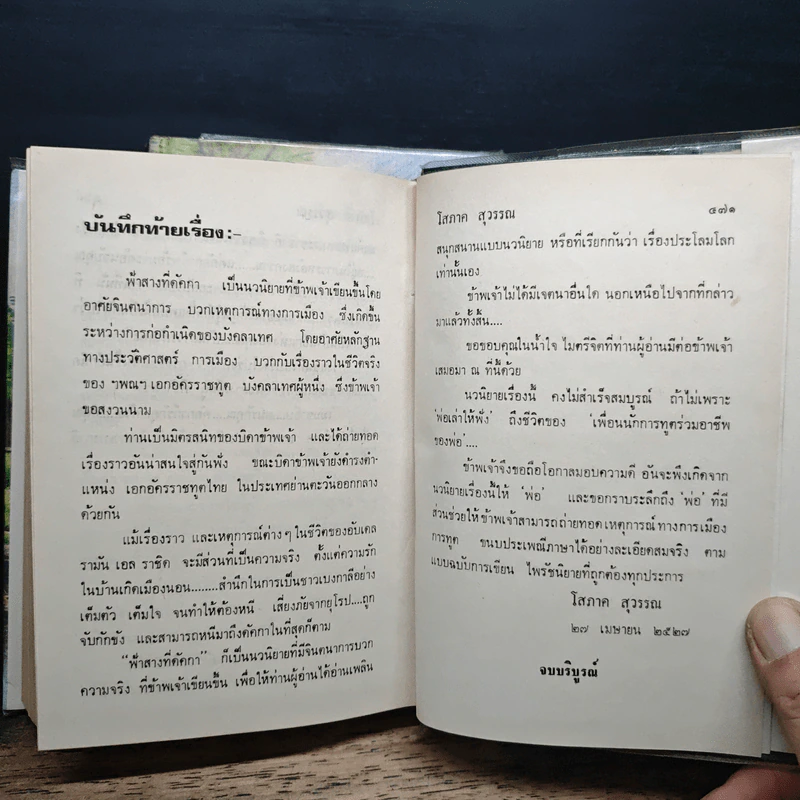 บันทึกท้ายเรื่อง:-
ฟ้าสางที่ดัคกา เป็นนวนิยายที่ข้าพเจ้าเขียนขึ้นโดย
อาศัยจินตนาการ บวกเหตุการณ์ทางการเมือง ซึ่งเกิดขึ้น
ระหว่างการก่อกำเนิดของบังคลาเทศ โดยอาศัยหลักฐาน
ทางประวัติศาสตร์ การเมือง บวกกับเรื่องราวในชีวิตจริง
ของ ฯพณฯ เอกอัครราชทูต บังคลาเทศผู้หนึ่ง ซึ่งข้าพเจ้า
ขอสงวนนาม
ท่านเป็นมิตรสนิทของบิดาข้าพเจ้า และได้ถ่ายทอด
เรื่องราวอันน่าสนใจสู่กันฟัง ขณะบิดาข้าพเจ้ายังดำรงตำ-
แหน่ง เอกอัครราชทูตไทย ในประเทศย่านตะวันออกกลาง
ด้วยกัน
แม้เรื่องราว และเหตุการณ์ต่างๆ ในชีวิตของอับเดล
รามัน เอล ราชิด จะมีส่วนที่เป็นความจริง ตั้งแต่ความรัก
ในบ้านเกิดเมืองนอน........สำนึกในการเป็นชาวเบงกาลีอย่าง
เต็มตัว เต็มใจ จนทำให้ต้องหนี เสี่ยงภัยจากยุโรป....ถูก
จับกักขัง และสามารถหนีมาถึงดัคกาในที่สุดก็ตาม
"ฟ้าสางที่ดัคกา" ก็เป็นนวนิยายที่มีจินตนาการบวก
ความจริง ที่ข้าพเจ้าเขียนขึ้น เพื่อให้ท่านผู้อ่านได้อ่านเพลิน
โสภาค สุวรรณ ๔๗๑
สนุกสนานแบบนวนิยาย หรือที่เรียกกันว่า เรื่องประโลมโลก
เท่านั้นเอง
ข้าพเจ้าไม่ได้มีเจตนาอื่นใด นอกเหนือไปจากที่กล่าว
มาแล้วทั้งสิ้น....
ขอขอบคุณในน้ำใจ ไมตรีจิตที่ท่านผู้อ่านมีต่อข้าพเจ้า
เสมอมา ณ ที่นี้ด้วย
นวนิยายเรื่องนี้ คงไม่สำเร็จสมบูรณ์ ถ้าไม่เพราะ
'พ่อเล่าให้ฟัง' ถึงชีวิตของ 'เพื่อนนักการทูตร่วมอาชีพ
ของพ่อ'....
ข้าพเจ้าจึงขอถือโอกาสมอบความดี อันจะพึงเกิดจาก
นวนิยายเรื่องนี้ให้ 'พ่อ' และขอกราบระลึกถึง 'พ่อ' ที่มี
ส่วนช่วยให้ข้าพเจ้าสามารถถ่ายทอด เหตุการณ์ทางการเมือง
การทูต ขนบประเพณีภาษาได้อย่างละเอียดสมจริง ตาม
แบบฉบับการเขียน ไพรัชนิยายที่ถูกต้องทุกประการ
โสภาค สุวรรณ
๒๗ เมษายน ๒๕๒๗
จบบริบูรณ์